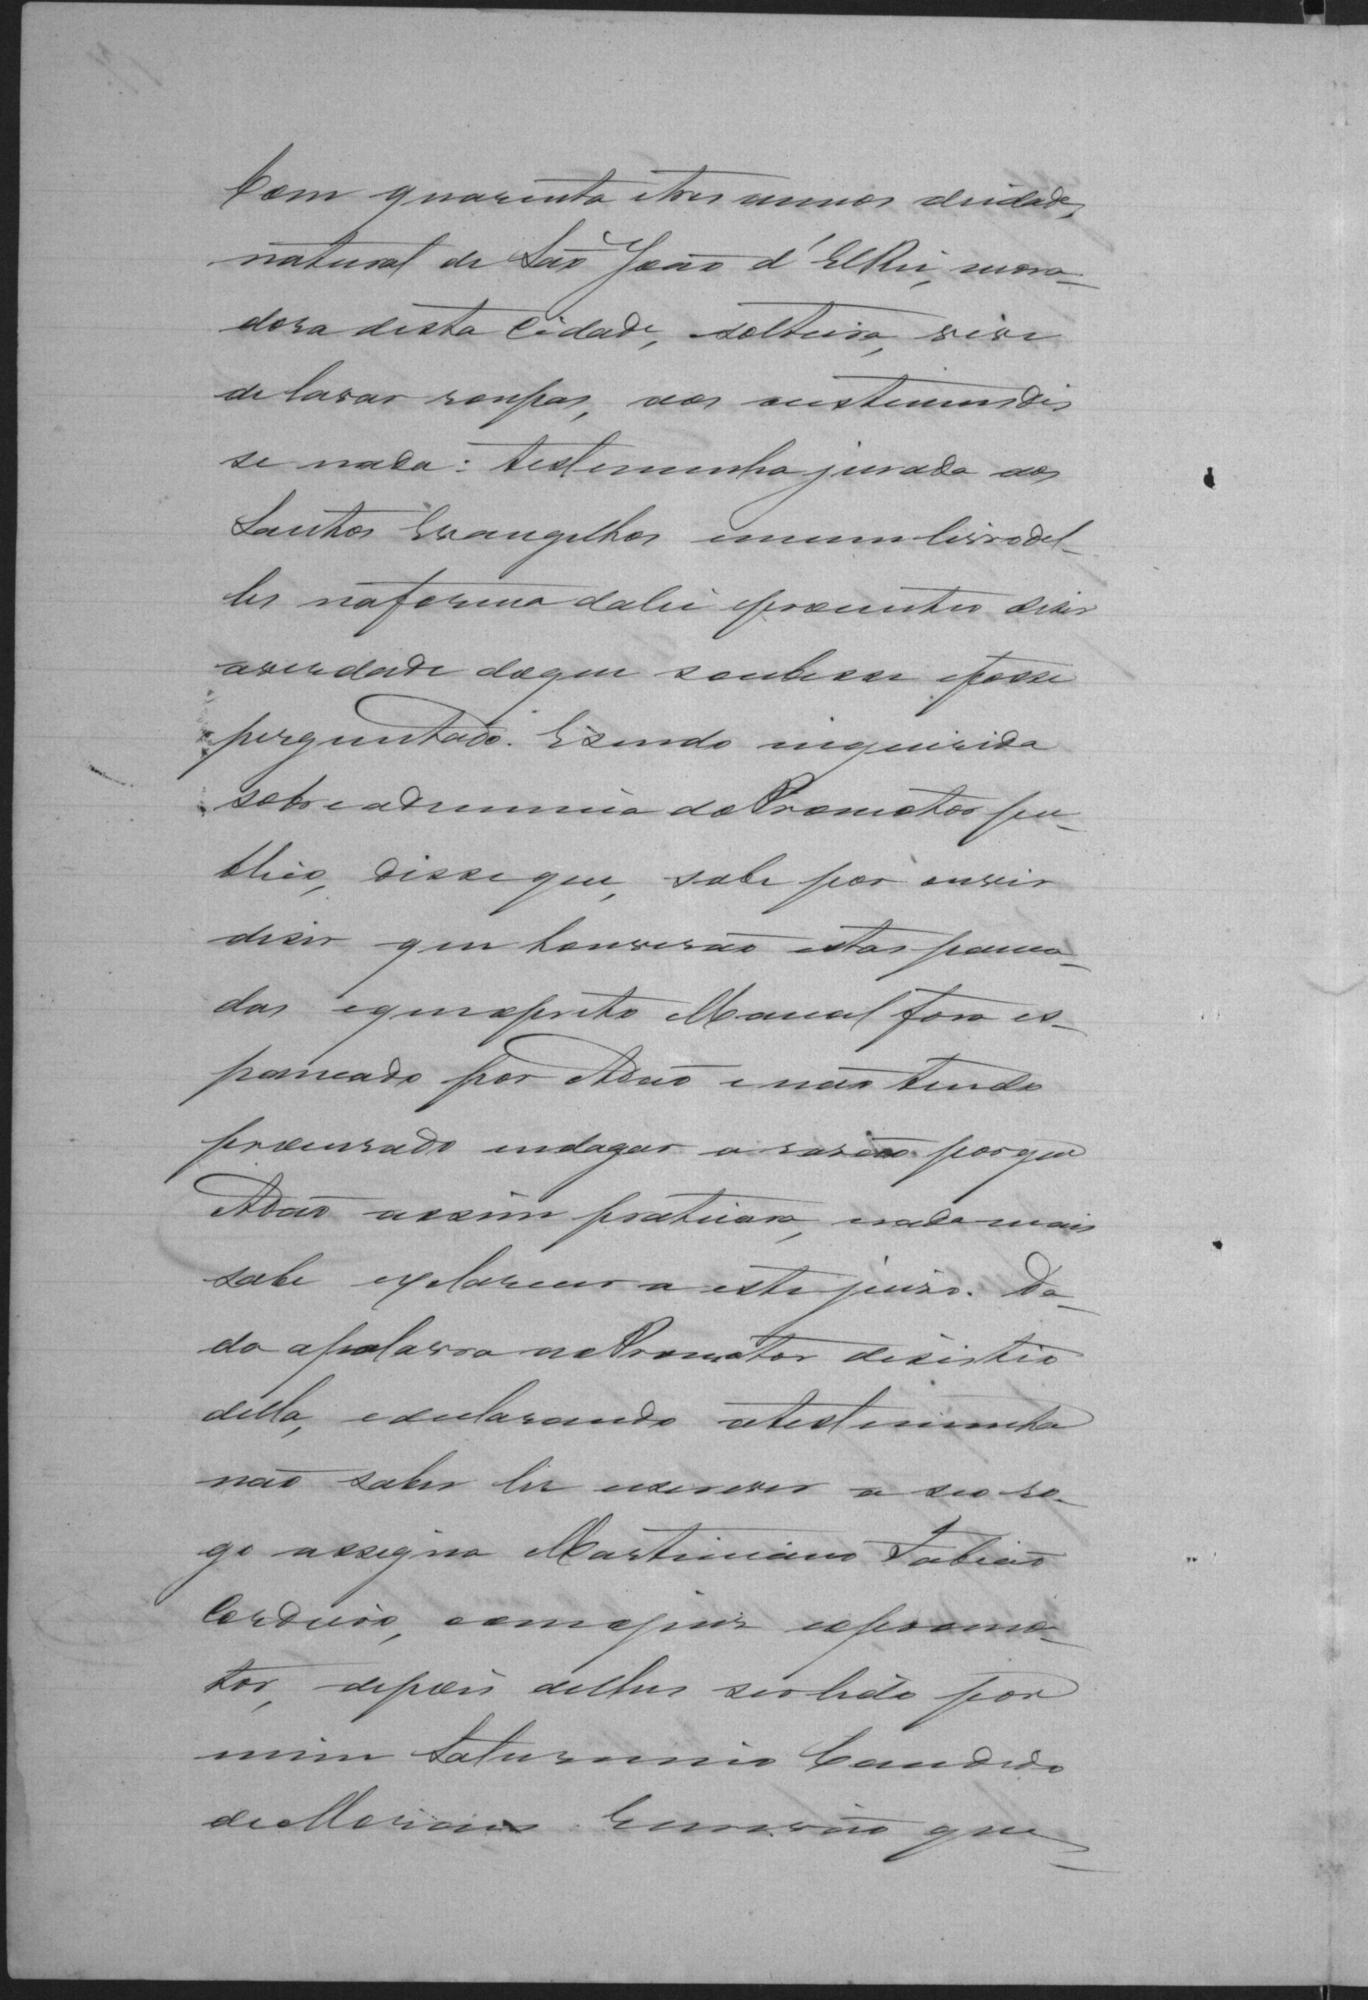 Com quarenta e tres annos de idade,
natural de São João d'El Rei, mora-
dora desta Cidade, solteira, vive
de lavar roupas, aos custumes dis
se nada: testemunha jurada aos
Santos Evangelhos em um livro del-
les na forma da lei prometteo diser
a verdade do que soubesse e fosse
perguntado. E sendo inquirida
sobre a denuncia do Promotor pu-
blico, disse que, sabe por ouvir
diser que houverão estas panca-
das e que o preto Manoel fora es-
pancado por Adão e não tendo
procurado indagar a rasão porque
Adão assim praticara, nada mais
sabe esclarecer a este juiso. Da-
do a palavra ao Promotor desistio
della, e declarando a testemunha
não saber ler e escrever a seo ro-
go assigna Martiniano Fabião
Cordeiro, com o juis e o promo-
tor, depois de lhes ser lido por
mim Saturnino Candido
de Moraes Escrivão que